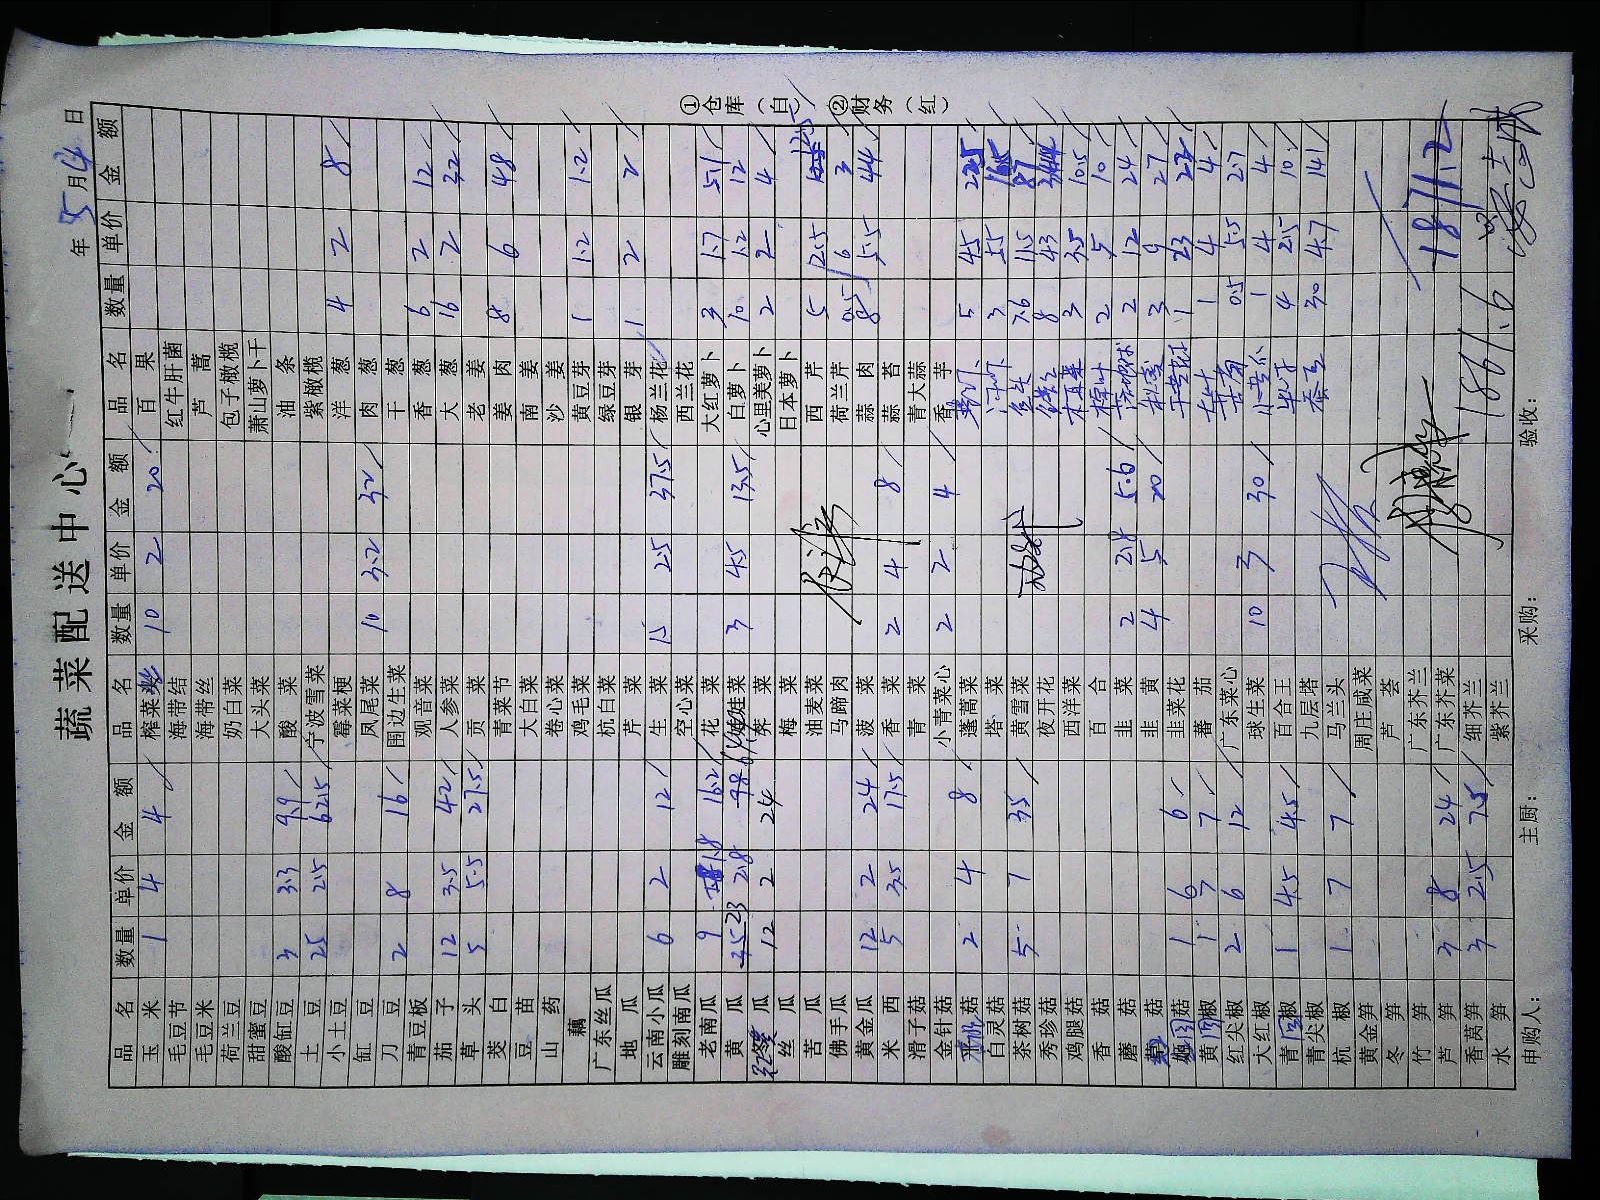 蔬菜配送中心
年 5月14日
品名 数量 单价 金额 品名 数量 单价 金额 品名 数量 单价 金额
玉米 1 4 4 榨菜丝 10 2 20 百果
毛豆节 海带结 红牛肝菌
毛豆米 海带丝 芦蒿
荷兰豆 奶白菜 包子橄榄
甜蜜豆 大头菜 萧山萝卜干
酸缸豆 3 3.3 9.9 酸菜 油条
土豆 25 2.5 62.5 宁波雪菜 紫橄榄
小土豆 霉菜梗 洋葱 4 2 8
缸豆 凤尾菜 10 3.2 32 肉葱
刀豆 2 8 16 围边生菜 干葱
青豆板 观音菜 香葱 6 2 12
茄子 12 3.5 42 人参菜 大葱 16 2 32
草头 5 5.5 27.5 贡菜 老姜
茭白 青菜节 姜肉 8 6 48
豆苗 大白菜 南姜
山药 卷心菜 沙姜
藕 鸡毛菜 黄豆芽 1 1.2 1.2
广东丝瓜 杭白菜 绿豆芽
地瓜 芹菜 银芽 1 2 2
云南小瓜 6 2 12 生菜 15 2.5 37.5 杨兰花
雕刻南瓜 空心菜 西兰花
老南瓜 9 1.8 16.2 花菜 大红萝卜 3 1.7 5.1
黄瓜 23 2.8 娃娃菜 3 4.5 13.5 白萝卜 10 1.2 12
冬瓜 12 2 24 荠菜 心里美萝卜 2 2 4
丝瓜 梅菜 日本萝卜
苦瓜 油麦菜 西芹 5 2.5 12.5
佛手瓜 马蹄肉 荷兰芹 0.5 6 3
黄金瓜 12 2 24 菠菜 蒜肉 8 5.5 44
米西 5 3.5 17.5 香菜 2 4 8 蒜苔
滑子菇 青菜 青大蒜
金针菇 小青菜心 2 2 4 香芋
菇 2 4 8 蓬蒿菜 5 4.5 22.5
白灵菇 塔菜 3 5.5 16.5
茶树菇 5 7 35 黄雪菜 7.6 11.5 87
秀珍菇 夜开花 8 43 344
鸡腿菇 西洋菜 3 3.5 10.5
香菇 百合 2 5 10
蘑菇 韭菜 2 2.8 5.6 2 12 24
菇 韭黄 4 5 20 3 9 27
菇 1 6 6 韭菜花 1 23 23
黄圆椒 1 7 7 蕃茄 1 4 4
红尖椒 2 6 12 广东菜心 0.5 5.5 2.7
大红椒 球生菜 10 3 30 1 4 4
青圆椒 1 4.5 4.5 百合王 4 2.5 10
青尖椒 九层塔 30 4.7 141
杭椒 1 7 7 马兰头
黄金笋 周庄咸菜
冬笋 芦荟
竹笋 广东芥兰
芦笋 3 8 24 广东芥菜
香莴笋 3 2.5 7.5 细芥兰
水笋 紫芥兰
1871.2
1861.6
申购人： 主厨： 采购： 验收：
①仓库（白） ②财务（红）